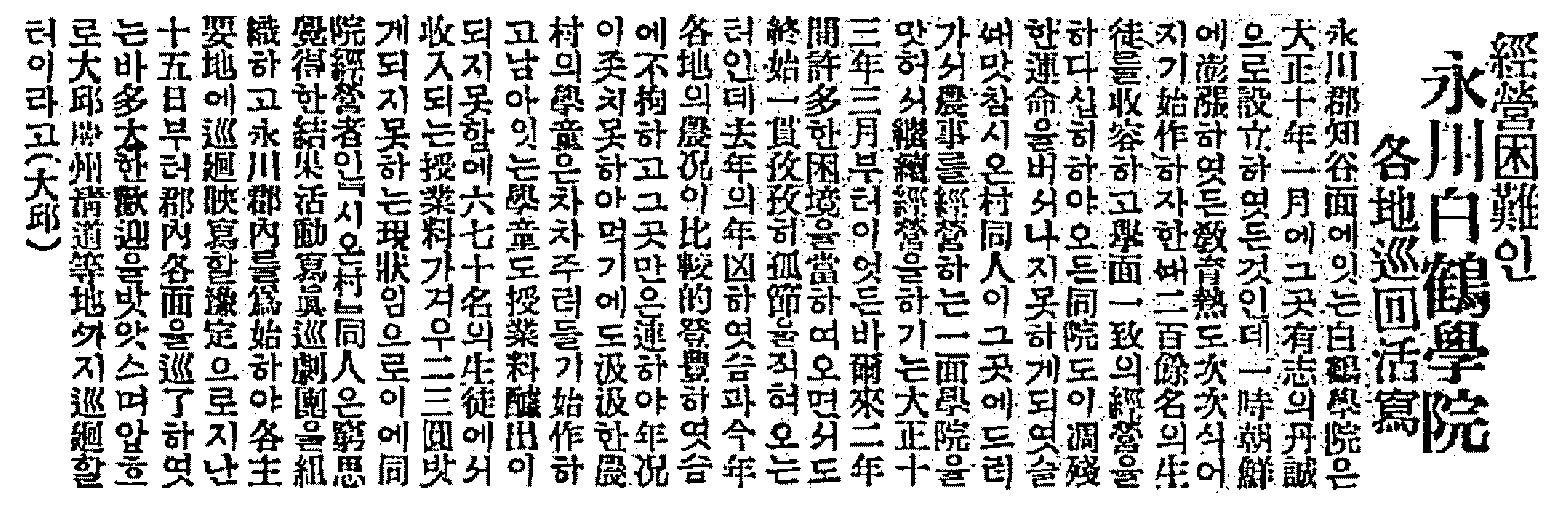 經營困難인
永川白鶴學院
各地巡回活寫
永川郡知谷面에잇는白鶴學院은
大正十年一月에그곳有志의丹誠
으로設立하엿든것인데一時朝鮮
에澎漲하엿든敎育熱도次次식어
지기始作하자한때二百餘名의生
徒를收容하고學面一致의經營을
하다십히하야오든同院도이凋殘
한運命을버서나지못하게되엿슬
때맛참시온村同人이그곳에드러
가서農事를經營하는一面學院을
맛허서繼續經營을하기는大正十
三年三月부터이엇든바爾來二年
間許多한困境을當하여오면서도
終始一貫孜孜히孤節을직혀오는
터인데去年의年凶하엿슴과今年
各地의農况이比較的登豊하엿슴
에不拘하고그곳만은連하야年况
이좃치못하야먹기에도汲汲한農
村의學童은차차주러들가始作하
고남아잇는學童도授業料醵出이
되지못함에六七十名의生徒에서
收入되는授業料가겨우二三圓밧
게되지못하는現狀임으로이에同
院經營者인『시온村』同人은窮思
覺得한結果活動寫眞巡劇團을組
織하고永川郡內를爲始하야各主
要地에巡廻映寫할豫定으로지난
十五日부터郡內各面을巡了하엿
는바多大한歡迎을밧앗스며압흐
로大邱慶州淸道等地外지巡廻할
터이라고(大邱)